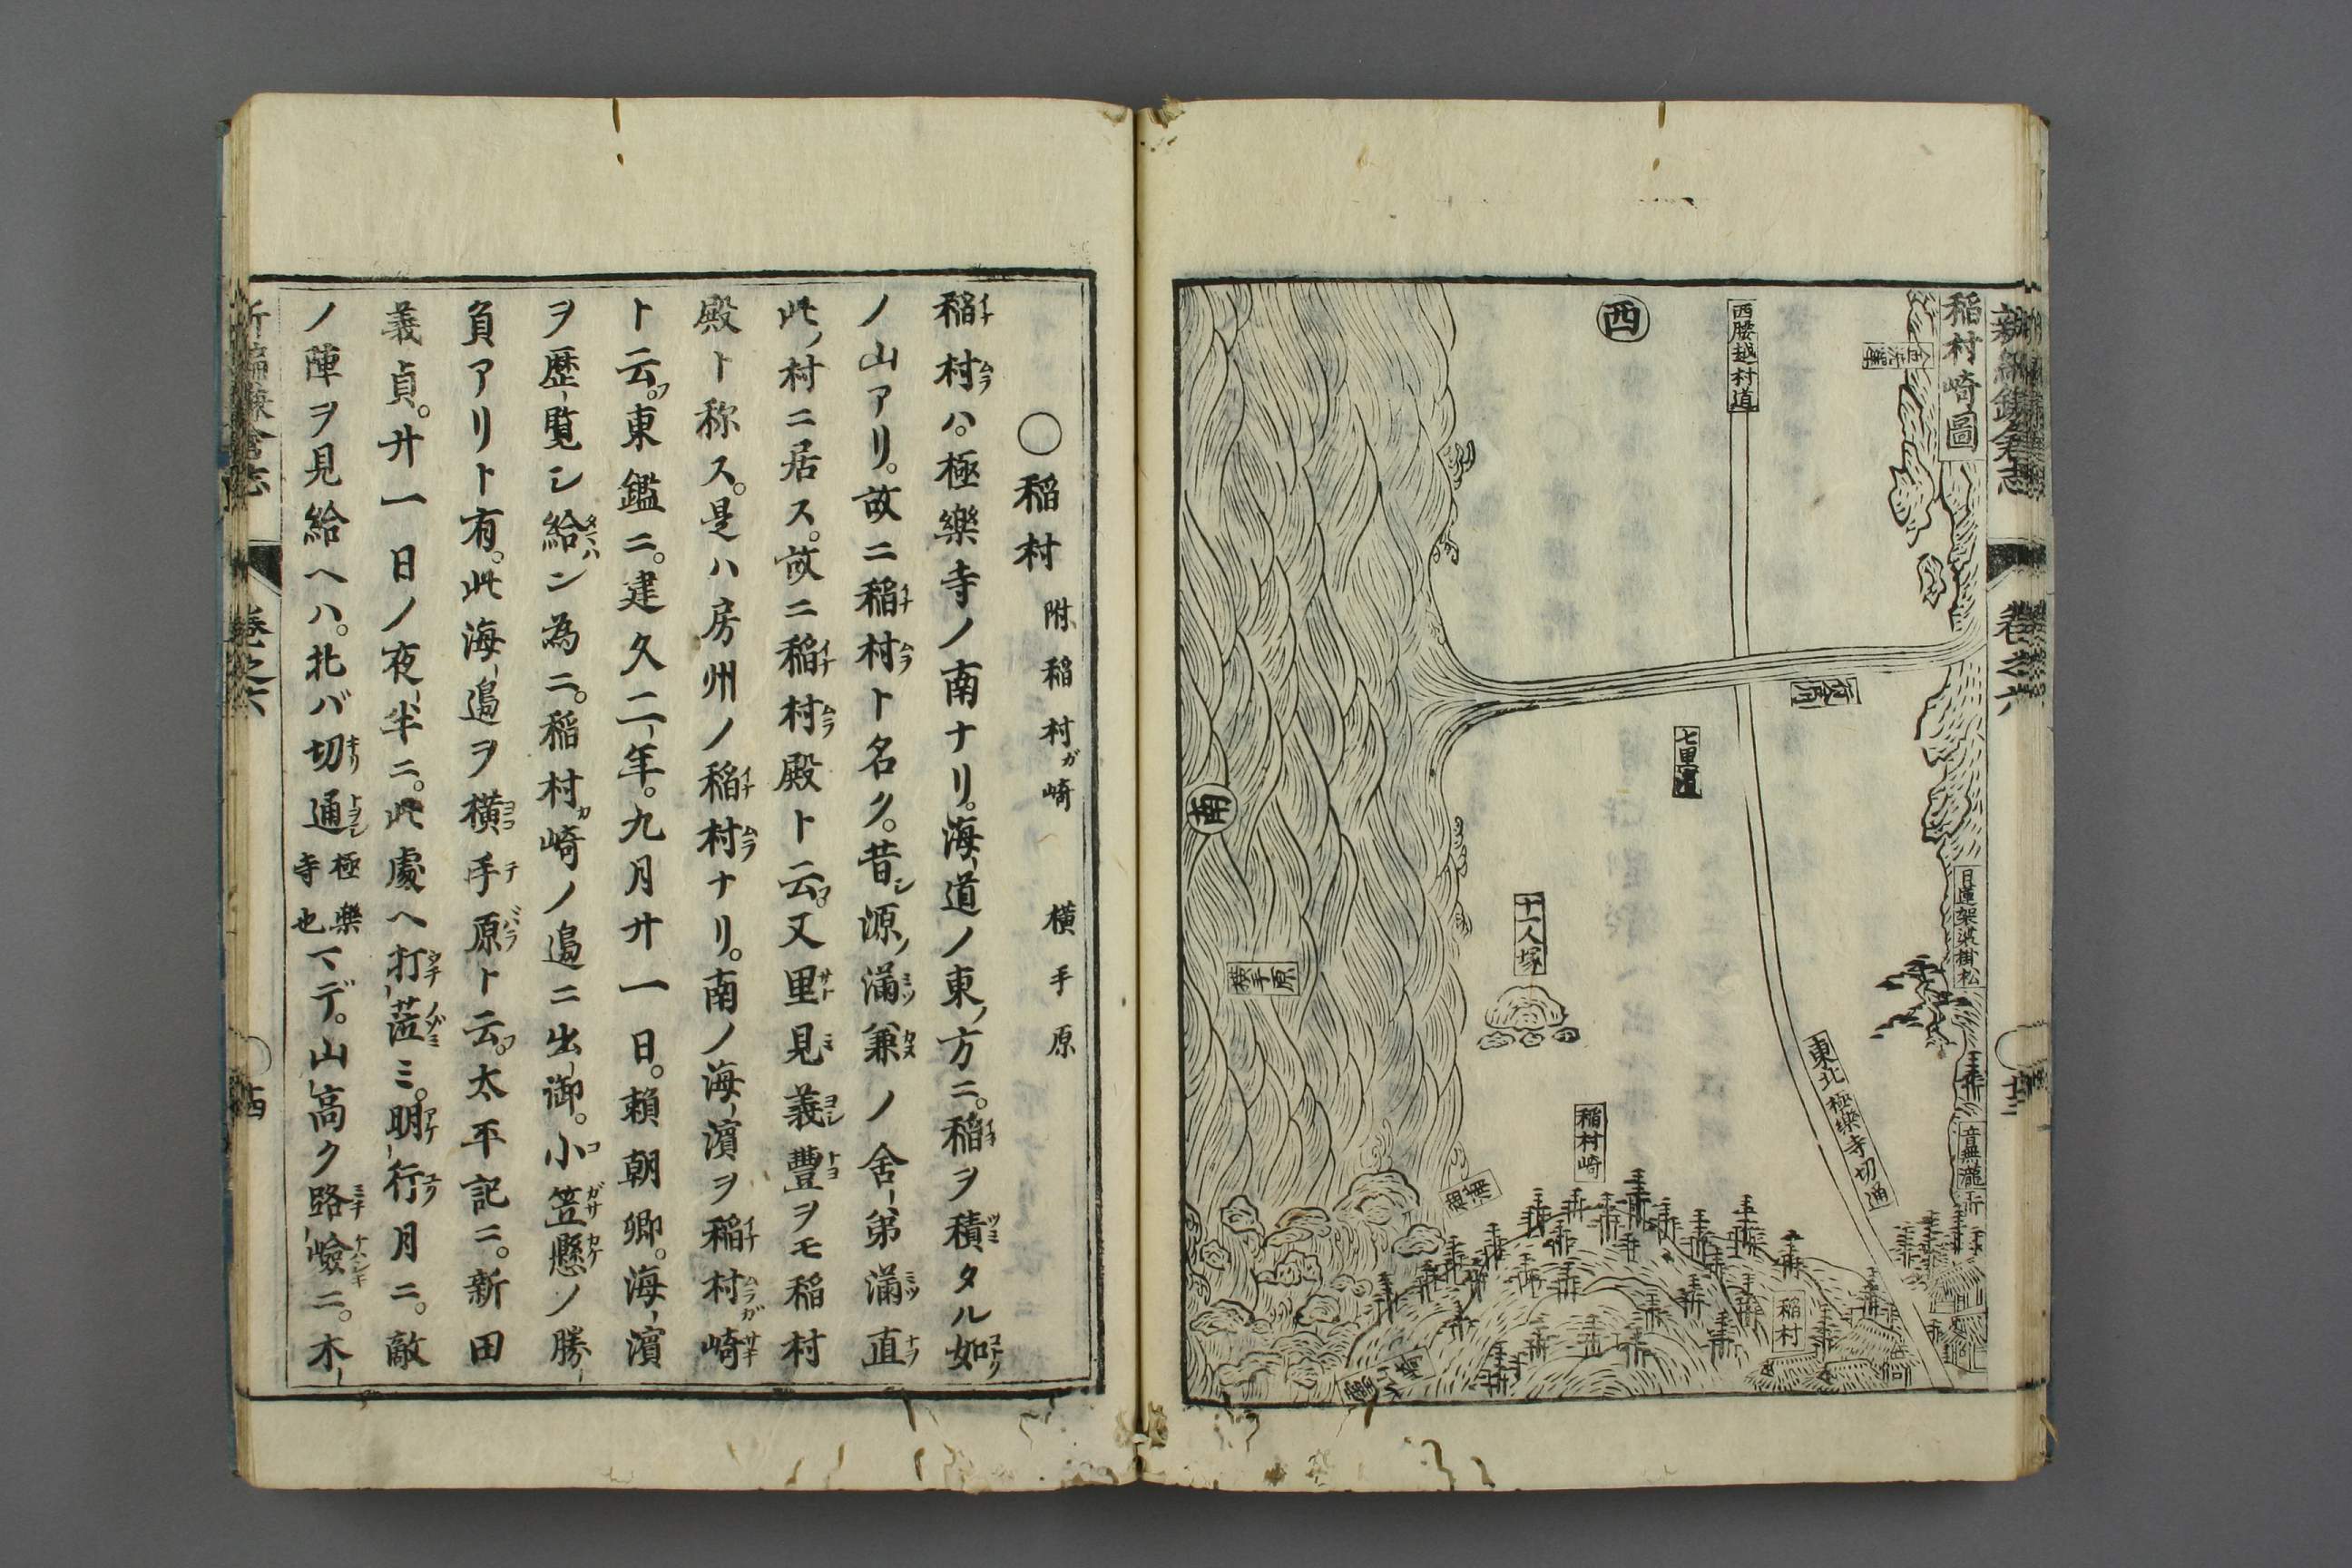 新編鎌倉志
卷之六
稲村崎圖
西
西腰越村道
七里濱
南
十一人塚
横手原
日蓮袈裟掛松
音無瀧
東北極樂寺切通
稲村崎
稲村
○稲村 附稲村ガ崎 横手原
稲村ハ。極樂寺ノ南ナリ。海道ノ東ノ方ニ。稲ヲ積タル如
ノ山アリ。故ニ稲村ト名ク。昔シ源ノ滿兼ノ舍弟滿直
此ノ村ニ居ス。故ニ稲村殿ト云フ。又里見義豊ヲモ稲村
殿ト称ス。是ハ房州ノ稲村ナリ。南ノ海濱ヲ稲村ガ崎
ト云フ。東鑑ニ。建久二年。九月廿一日。頼朝卿。海濱
ヲ歴覧シ給ン為ニ。稲村カ崎ノ邉ニ出御。小笠懸ノ勝
負アリト有。此海邉ヲ横手原ト云フ。太平記ニ。新田
義貞。廿一日ノ夜半ニ。此處ヘ打莅ミ。明行月ニ。敵
ノ陣ヲ見給ヘハ。北バ切通極樂寺也マデ。山高ク路嶮ニ。木
新編鎌倉志
卷之六